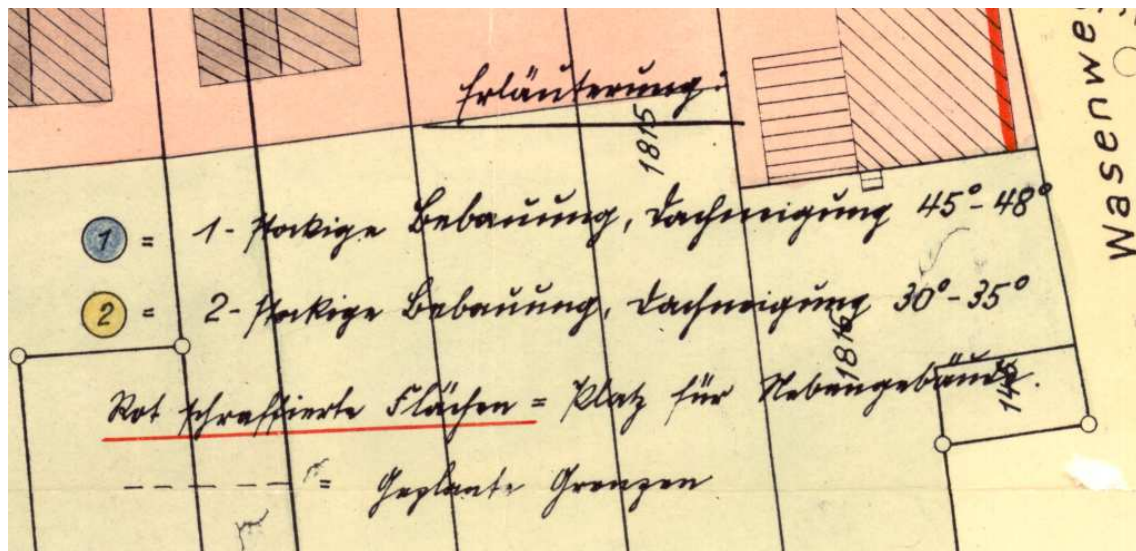 Erläuterung:
1815
Wasenwe
1 = 1-stockige Bebauung, Dachneigung 45°-48°
2 = 2-stockige Bebauung, Dachneigung 30°-35°
1816
Rot schraffierte Flächen = Platz für Nebengebäude.
- - - - - - = Geplante Grenzen